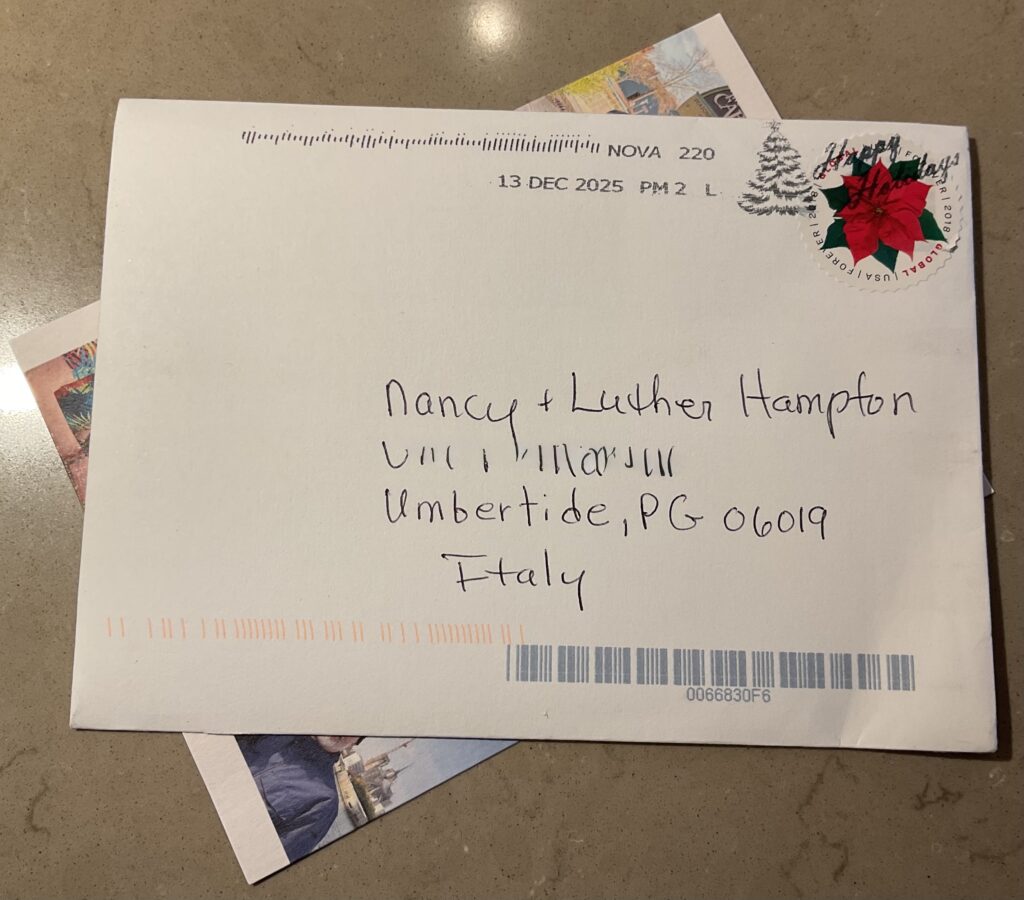 NOVA 220
13 DEC 2025 PM 2 L
Happy
Holidays
GLOBAL | USA | FOREVER | 2018 | GLOBAL | USA | FOREVER | 2018
Nancy + Luther Hampton
Umbertide, PG 06019
Italy
0066830F6